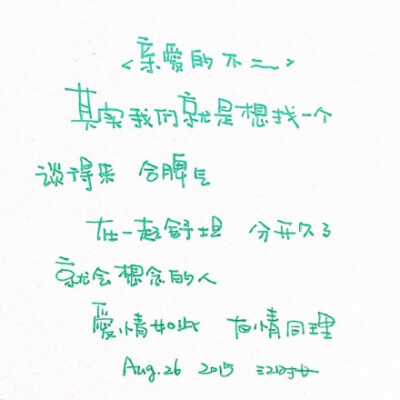 <亲爱的不二>
其实我们就是想找一个
谈得来 合脾气
在一起舒坦 分开久了
就会想念的人
爱情如此 友情同理
Aug.26 2015